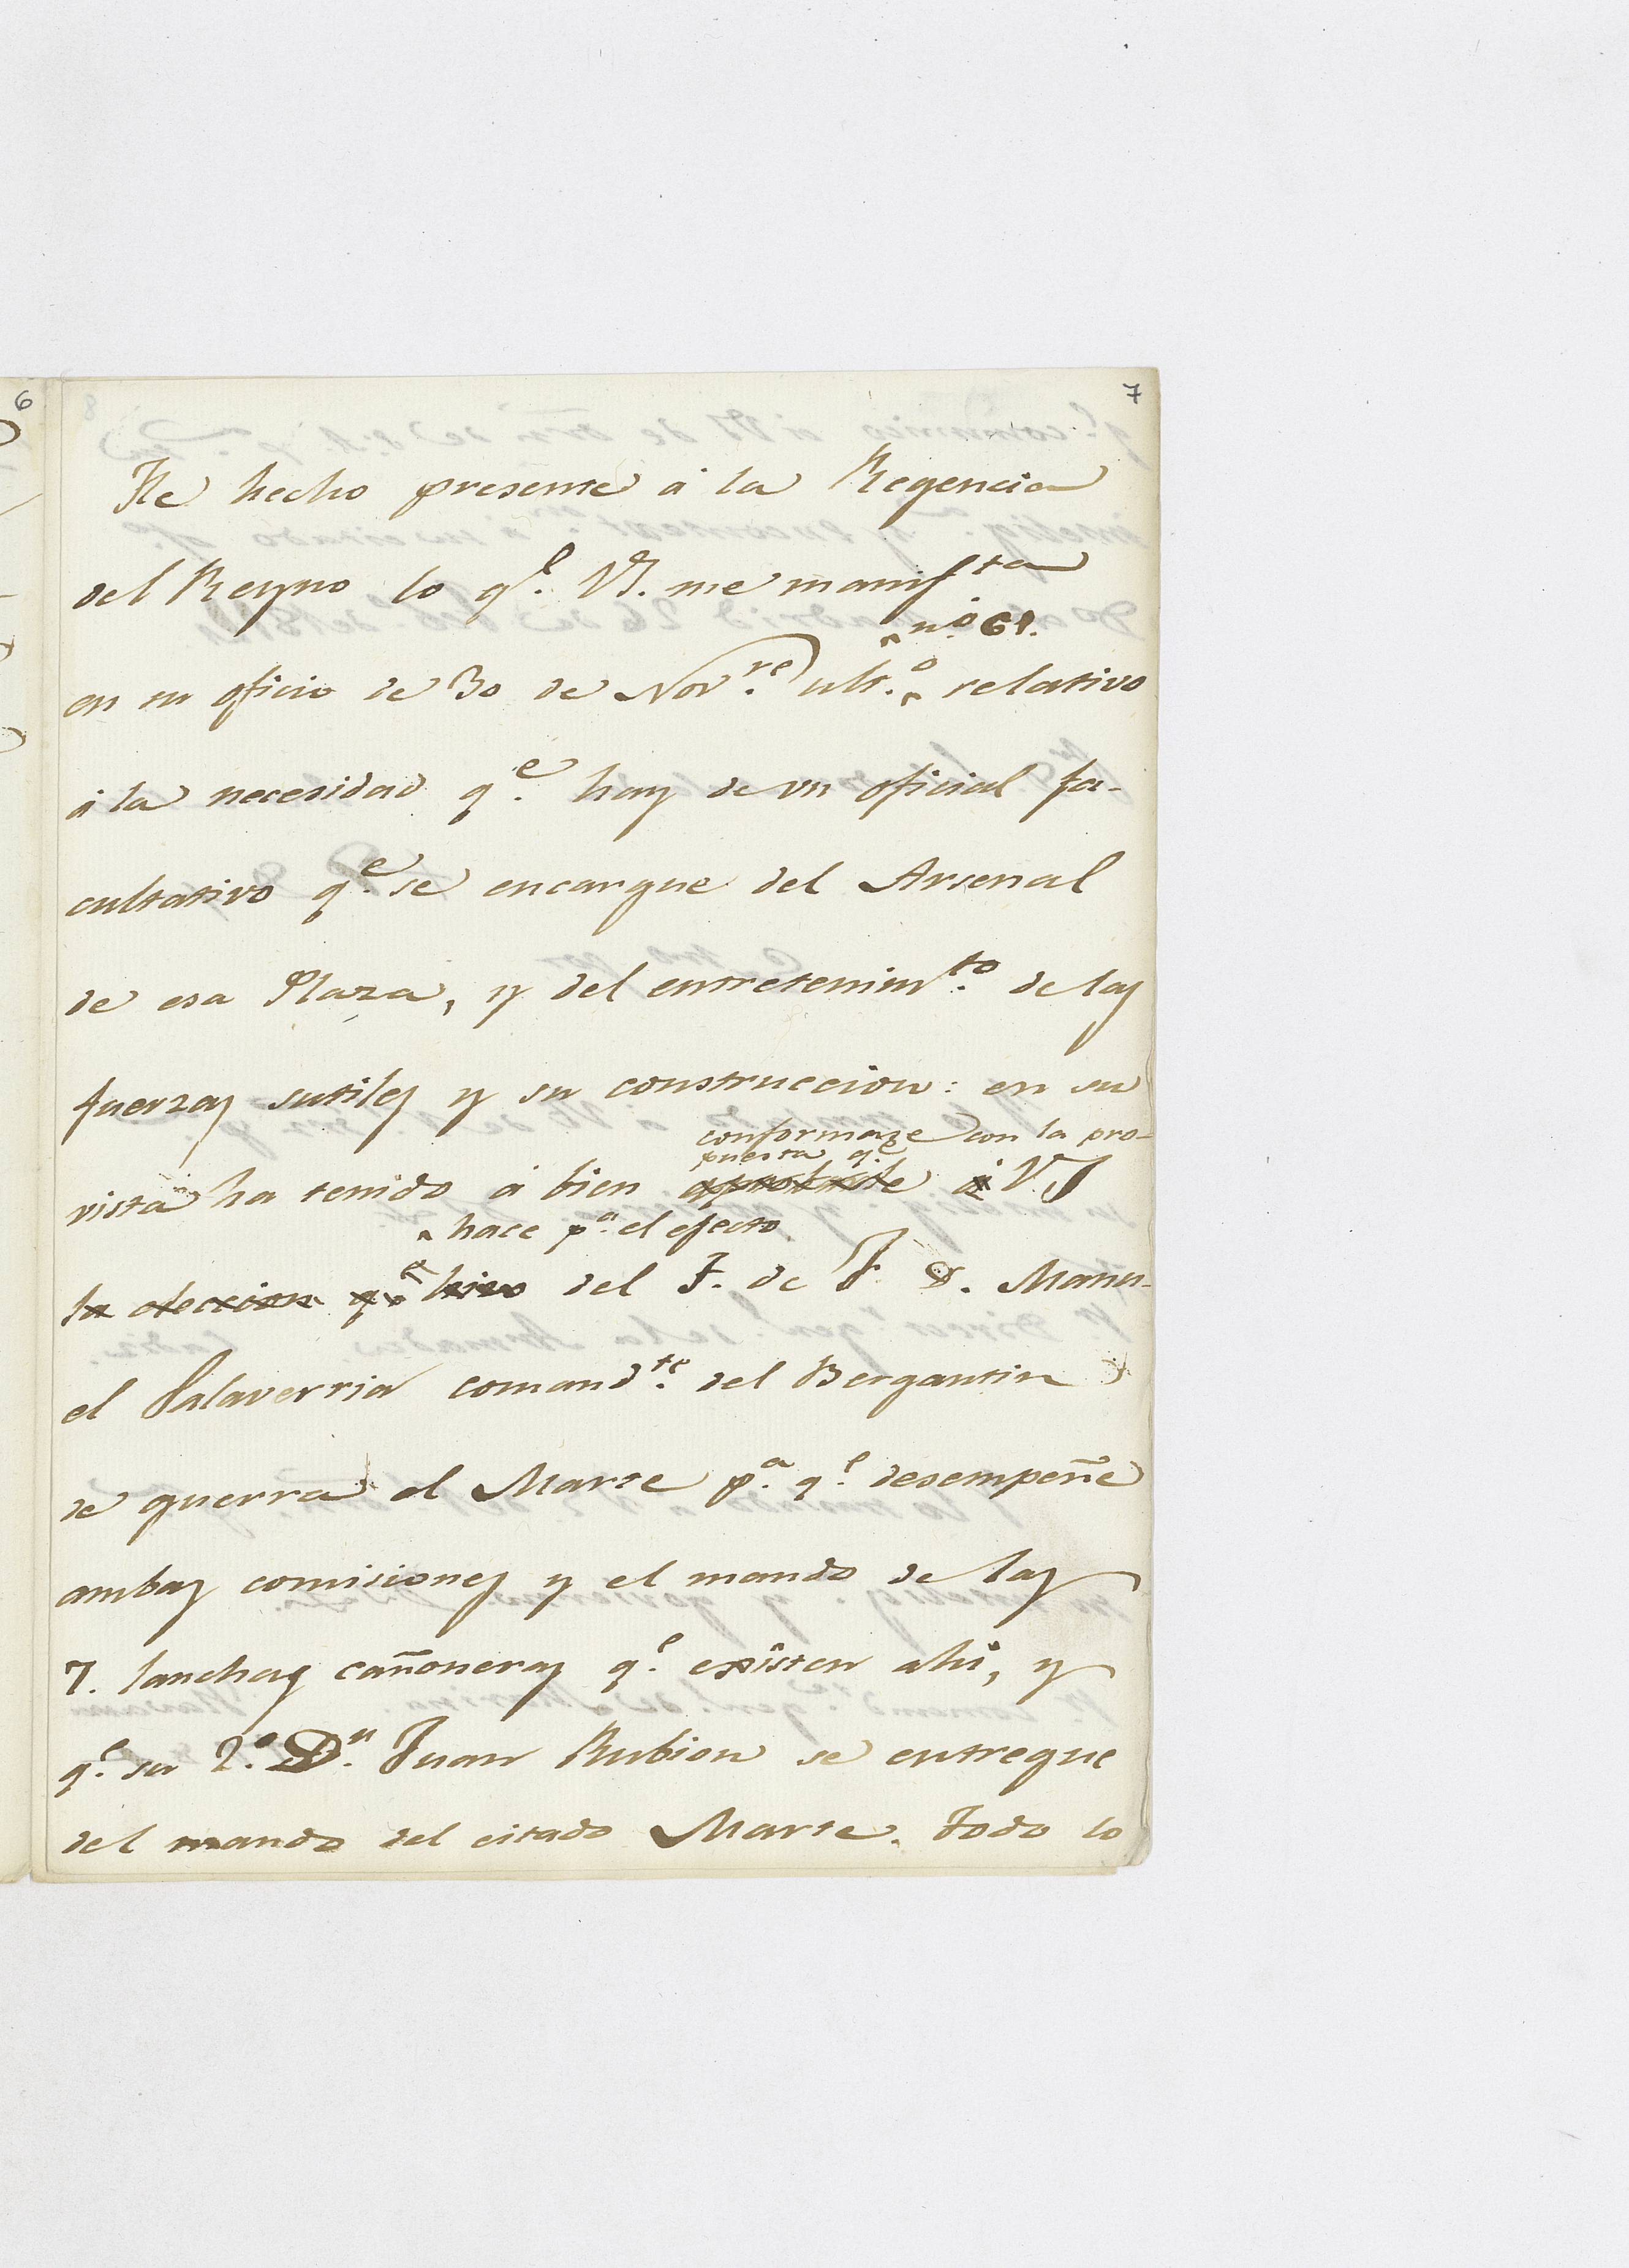 7
6
He hecho presente á la Regencia
del Reyno lo q.e VS. me manifta
n.o 61.
en su oficio de 30 de Nov.re ult.o relativo
á la necesidad q.e hay de un oficial fa-
cultativo q.e se encargue del Arsenal
de esa Plaza, y del entretenim.to de las
fuerzas sutiles y su construccion: en su
conformarse con la pro-
puesta q.e
vista ha tenido á bien aprobarle á VS
hace p.a el efecto
la eleccion q.e hizo del T. de F. D. Manu-
el Salaverria comand.te del Bergantin
de guerra el Marte p.a q.e desempeñe
ambas comisiones y el mando de las
7. lanchas cañoneras q.e exîsten ahi, y
q.e su 2.o D.n Juan Rubion se entregue
del mando del citado Marte. Todo lo